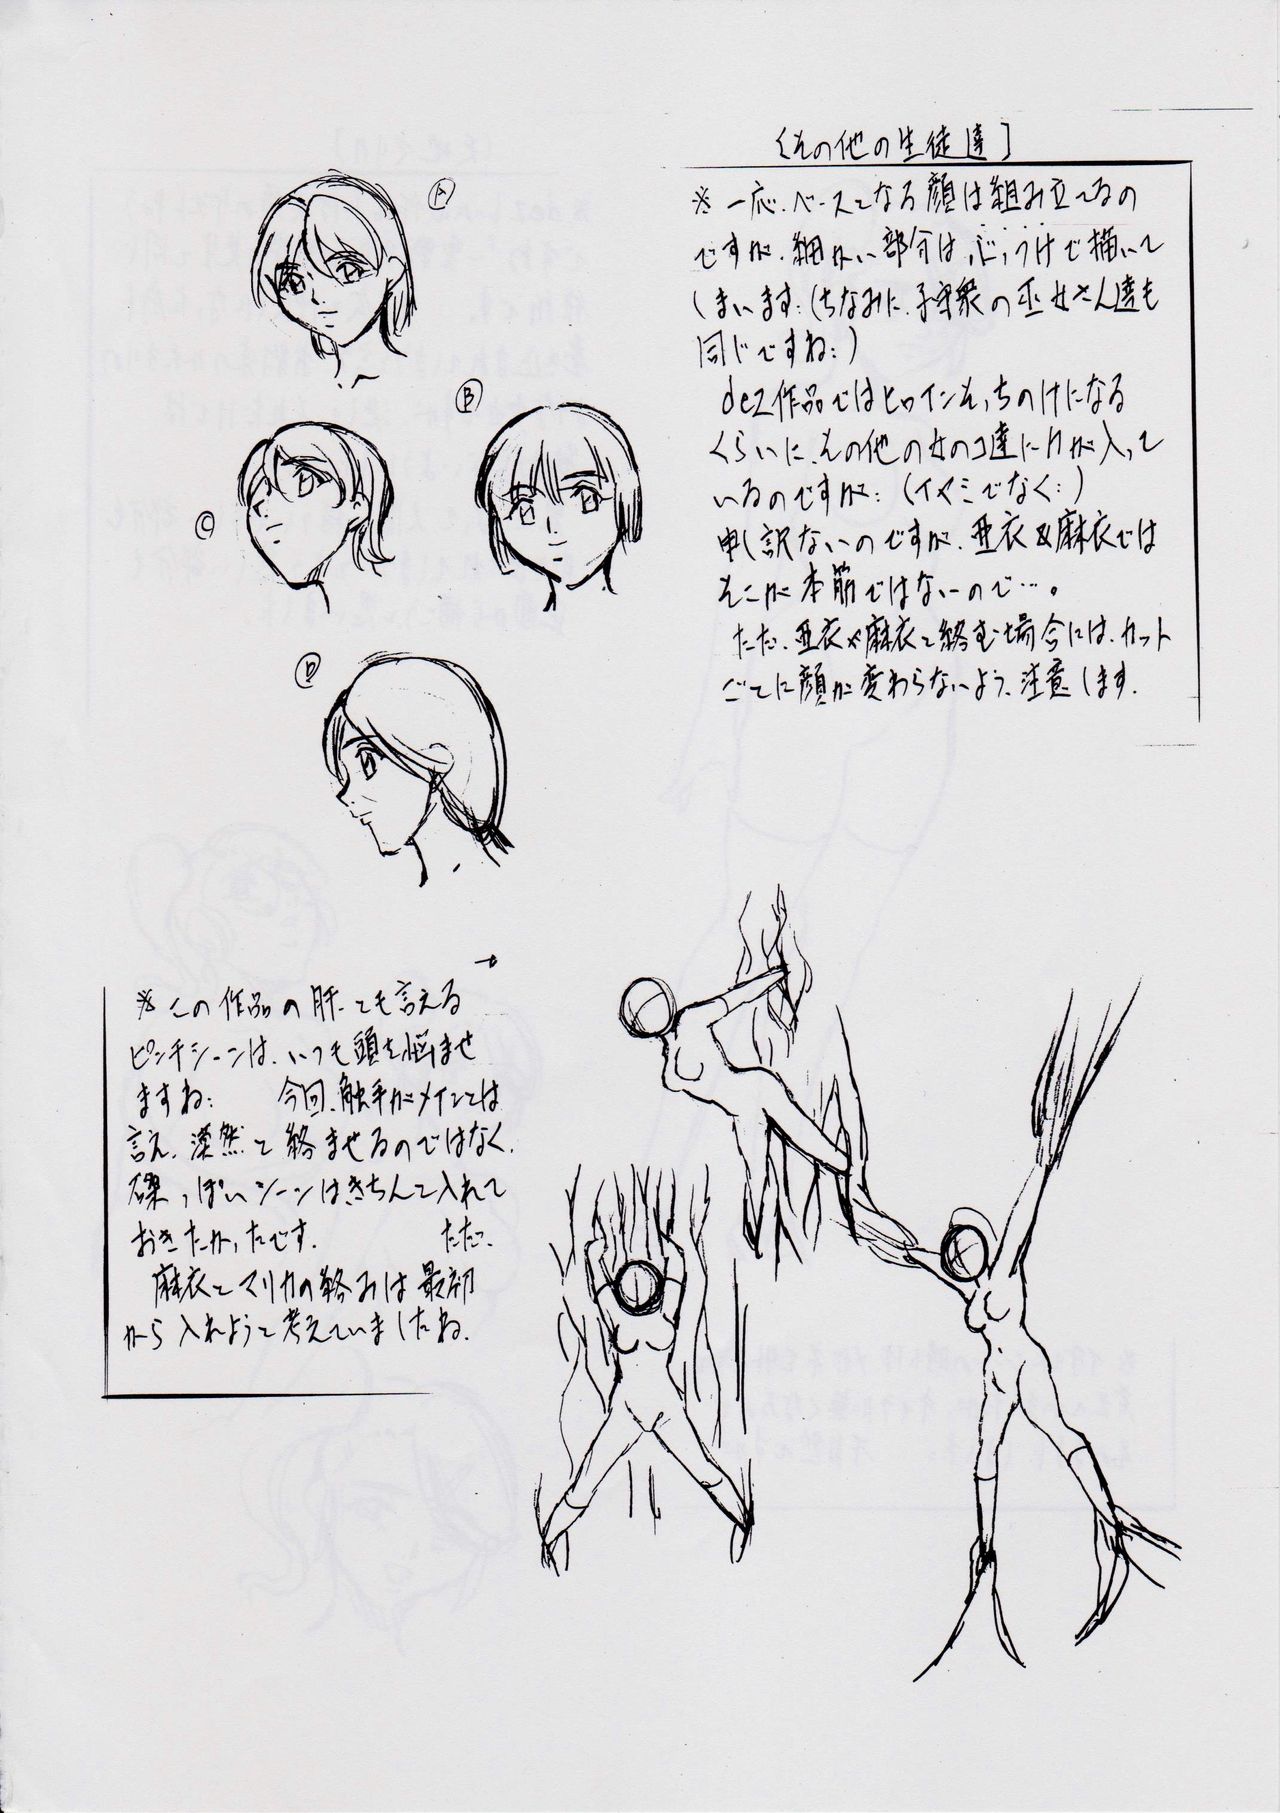 〔その他の生徒達〕
※一応、ベースとなる顔は組み立てるの
ですが、細かい部分は、ぶっつけで描いて
しまいます:(ちなみに、子守衆の巫女さん達も
同じですね:)
dez作品ではヒロインそっちのけになる
くらいに、その他の女のコ達に力が入って
いるのですが:(イヤミでなく:)
申し訳ないのですが、亜衣&麻衣では
そこが本筋ではないので…。
ただ、亜衣や麻衣と絡む場合には、カット
ごとに顔が変わらないよう、注意します.
A
B
C
D
※この作品の肝とも言える
ピンチシーンは、いつも頭を悩ませ
ますね: 今回、触手がメインとは
言え、漠然と絡ませるのではなく、
磔っぽいシーンはきちんと入れて
おきたかったです. ただ、
麻衣とマリカの絡みは最初
から入れようと考えていましたね.